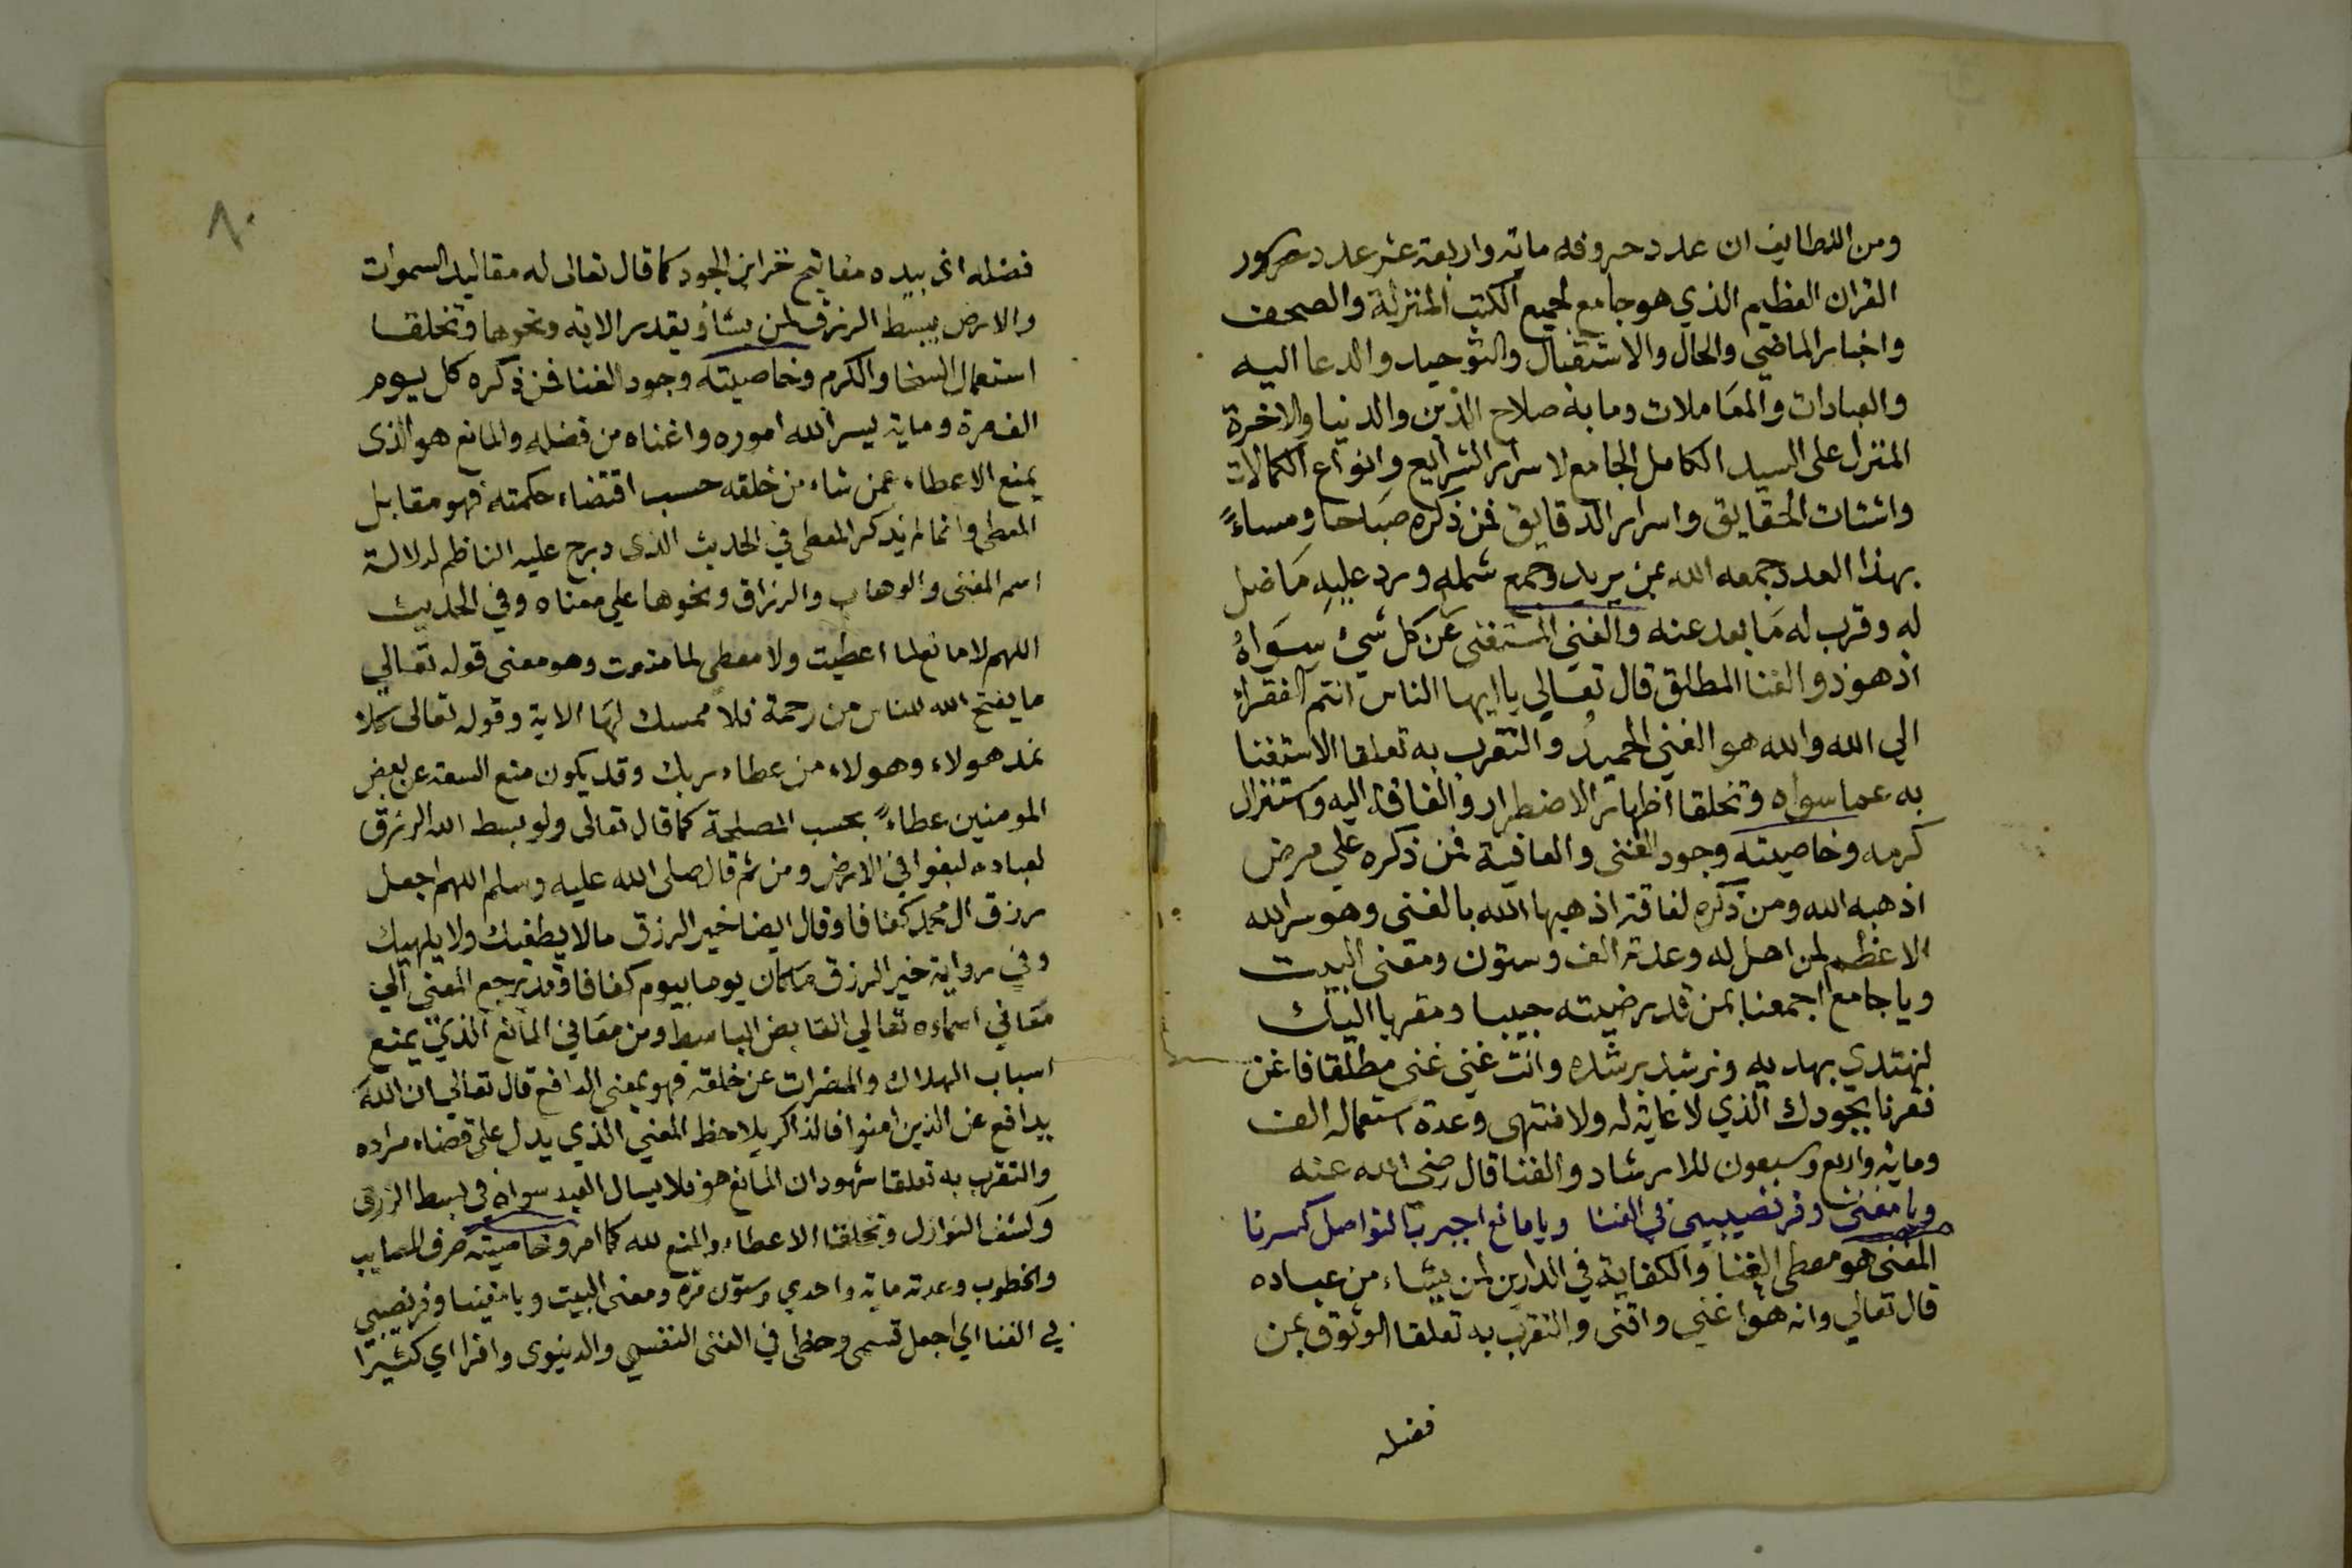 ومن اللطايف ان عدد حروفه ماية واربعة عشر عدد سور
القران العظيم الذي هو جامع لجميع الكتب المنزلة والصحف
واخبار الماضي والحال والاستقبال والتوحيد والدعا اليه
والعبادات والمعاملات وما به صلاح الدين والدنيا والاخرة
المنزل على السيد الكامل الجامع لاسرار الشرايع وانواع الكمالات
واشتات الحقايق واسرار الدقايق فمن ذكره صباحا ومساءً
بهذا العدد جمعه الله بمن يريد وجمع شمله ورد عليه ما ضل
له وقرب له ما بعد عنه والغني المستغني عن كل شيء سواهُ
اذ هو ذو الغنا المطلق قال تعالي يا ايها الناس انتم الفقراء
الي الله والله هو الغني الحميدُ والتقرب به تعلقا الاستغنا
به عما سواه وتخلقا اظهار الاضطرار والفاقة اليه واستنزال
كرمه وخاصيته وجود الغنى والعافية فمن ذكره علي مرض
اذهبه الله ومن ذكره لفاقة اذهبها الله بالغنى وهو سر الله
الاعظم لمن اهل له وعدته الف وستون ومعنى البيت
ويا جامع اجمعنا بمن قد رضيته حبيبا ومقربا اليك
لنهتدي بهديه ونرشد برشده وانت غني غنى مطلقا فاغن
فقرنا بجودك الذي لا غاية له ولا منتهى وعدة استعماله الف
وماية واربع وسبعون للارشاد والغنا قال رضي الله عنه
ويا مغني وفر نصيبي في الغنا ويا مانع اجبر بالتواصل كسرنا
المغنى هو معطى الغنا والكفاية في الدارين لمن يشاء من عباده
قال تعالي وانه هو اغني واقنى والتقرب به تعلقا الوثوق بمن
فضله
٨٠
فضله اذ بيده مفاتيح خزاين الجود كما قال تعالى له مقاليد السموات
والارض يبسط الرزق لمن يشأ ويقدر الاية ونحوها وتخلقا
استعمال السخا والكرم وخاصيته وجود الغنا فمن ذكره كل يوم
الف مرة وماية يسر الله اموره واغناه من فضله والمانع هو الذى
يمنع الاعطاء عمن شاء من خلقه حسب اقتضاء حكمته فهو مقابل
المعطى وانما لم يذكر المعطى في الحديث الذى درج عليه الناظم لدلالة
اسم المغنى والوهاب والرزاق ونحوها علي معناه وفي الحديث
اللهم لا مانع لما اعطيت ولا معطى لما منعت وهو معنى قوله تعالي
ما يفتح الله للناس من رحمة فلا ممسك لها الاية وقوله تعالى كلا
نمد هولاء وهولاء من عطاء ربك وقد يكون منع السعة عن بعض
المومنين عطاءً بحسب المصلحة كما قال تعالى ولو بسط الله الرزق
لعباده لبغوا في الارض ومن ثم قال صلى الله عليه وسلم اللهم اجعل
رزق ال محمد كفافا وقال ايضا خير الرزق ما لا يطغيك ولا يلهيك
وفي رواية خير الرزق ما كان يوما بيوم كفافا وقد يرجع المعنى الي
معاني اسماءه تعالي القابض الباسط ومن معاني المانع الذي يمنع
اسباب الهلاك والمضرات عن خلقه فهو بمعنى الدافع قال تعالي ان الله
يدافع عن الذين امنوا فالذاكر يلاحظ المعني الذي يدل على قضاء مراده
والتقرب به تعلقا شهود ان المانع هو فلا يسال العبد سواه في بسط الرزق
وكشف النوازل وتخلقا الاعطاء والمنع لله كما امر وخاصيته صرف المصايب
والخطوب وعدته ماية واحدي وستون مرة ومعنى البيت ويا مغنينا وفر نصيبي
في الغنا اي اجعل قسمى وحظى في الغنى النفسي والدنيوى وافرا اي كثيرا